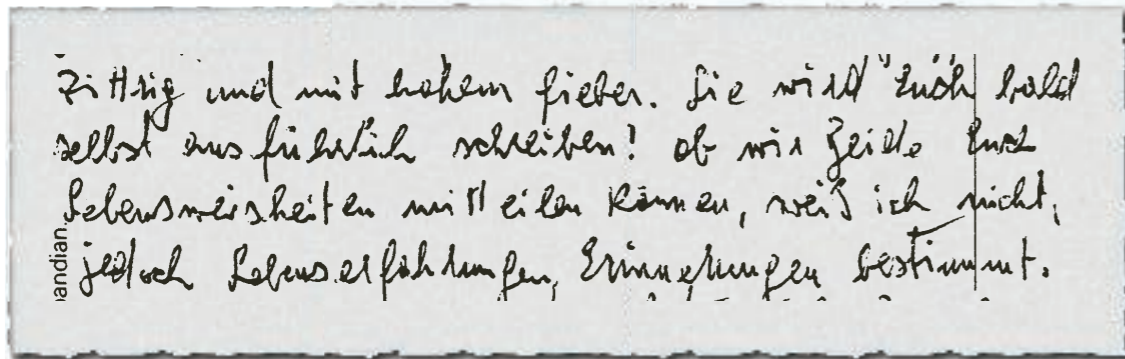 zittrig und mit hohem Fieber. Sie wird Euch bald
selbst ausführlich schreiben! Ob wir beide Euch
Lebensweisheiten mitteilen können, weiß ich nicht,
jedoch Lebenserfahrungen, Erinnerungen bestimmt.
andian